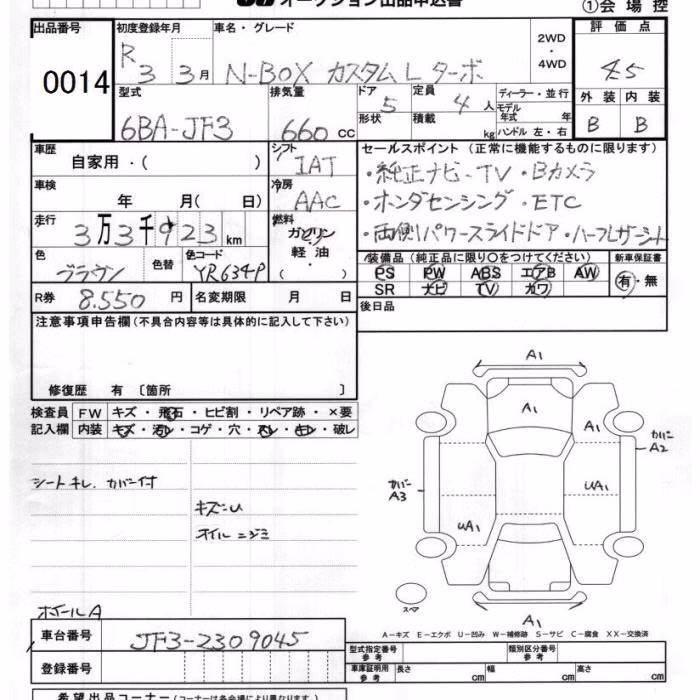 オークション出品申込書
①会場控
出品番号 初度登録年月 車名・グレード 評価点
0014
R3 3月 N-BOX カスタム L ターボ 2WD・4WD 4.5
型式 排気量 ドア 5 定員 4人 ディーラー・並行 外装 内装
6BA-JF3 660cc 形状 積載 kg モデル年式 年 ハンドル 左・右 B B
車歴 自家用・( ) シフト IAT セールスポイント (正常に機能するものに限ります)
車検 年 月( 日) 冷房 AAC
・純正ナビ・TV・Bカメラ
・ホンダセンシング・ETC
走行 3万3千923km 燃料 ガソリン 軽油・
・両側パワースライドドア・ハーフレザーシート
色 ブラウン 色替 色コード YR634P
装備品 (純正品に限り○をつけてください) 新車保証書
PS PW ABS エアB AW 有・無
SR ナビ TV カワ
R券 8.550円 名変期限 月 日 後日品
注意事項申告欄 (不具合内容等は具体的に記入して下さい)
修復歴 有 〔箇所 〕
検査員 FW キズ・飛石・ヒビ割・リペア跡・×要
記入欄 内装 キズ・汚レ・コゲ・穴・スレ・キレ・破レ
シートキレ、カバー付
キズ=U
オイルニジミ
ホイールA
A1
A1
A1
カバーA2
カバーA3
UA1
UA1
スペア
A1
A-キズ E-エクボ U-凹み W-補修跡 S-サビ C-腐食 XX-交換済
車台番号 JF3-2309045
型式指定番号 参考 類別区分番号 参考
登録番号
車庫証明用 参考 長さ cm 幅 cm 高さ cm
希望出品コーナー (コーナーは各会場により異なります。)